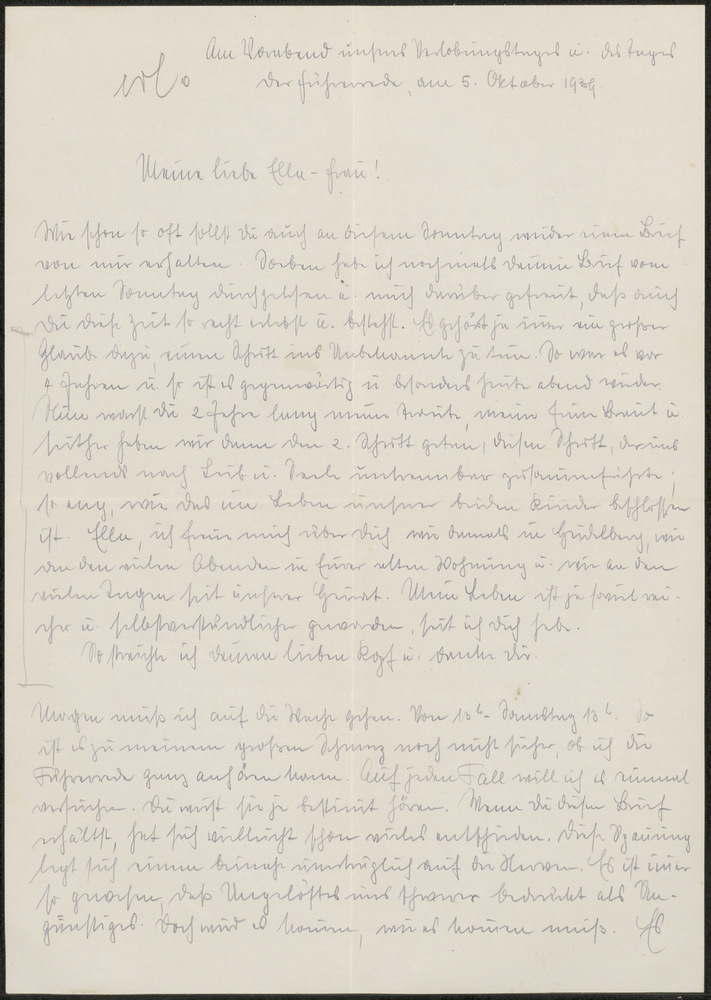 Am Vorabend unsres Verlobungstages u. des Tages
der Führerrede, am 5. Oktober 1939
erl.
Meine liebe Ella-Frau!
Wie schon so oft sollst Du auch an diesem Sonntag wieder einen Brief
von mir erhalten. Soeben habe ich nochmals Deinen Brief vom
letzten Sonntag durchgelesen u. mich darüber gefreut, daß auch
Du diese Zeit so recht erlebst u. bestehst. Es gehört ja immer ein großer
Glaube dazu, einen Schritt ins Unbekannte zu tun. So war es vor
4 Jahren u. so ist es gegenwärtig u. besonders heute abend wieder.
Nun warst Du 2 Jahre lang meine Braut, meine feine Braut u.
seither haben wir dann den 2. Schritt getan, diesen Schritt, der uns
vollends nach Leib u. Seele untrennbar zusammenführte;
so eng, wie das im Leben unsrer beiden Kinder beschlossen
ist. Ella, ich freue mich über Dich wie damals in Heidelberg, wie
an den vielen Abenden in Eurer alten Wohnung u. wie an den
vielen Tagen seit unsrer Heirat. Mein Leben ist ja soviel rei-
cher u. selbstverständlicher geworden, seit ich Dich habe.
So streichle ich Deinen lieben Kopf u. danke Dir.
Morgen muß ich auf die Wache gehen. Von 13h - Samstag 13h. So
ist es zu meinem großen Schmerz noch nicht sicher, ob ich die
Führerrede ganz anhören kann. Auf jeden Fall will ich es einmal
versuchen. Du wirst sie ja bestimmt hören. Wenn Du diesen Brief
erhältst, hat sich vielleicht schon vieles entschieden. Diese Spannung
legt sich einem beinahe unerträglich auf die Nerven. Es ist immer
so gewesen, daß Ungelöstes uns schwerer bedrückt als Un-
günstiges. Doch wird es kommen, wie es kommen muß. Es